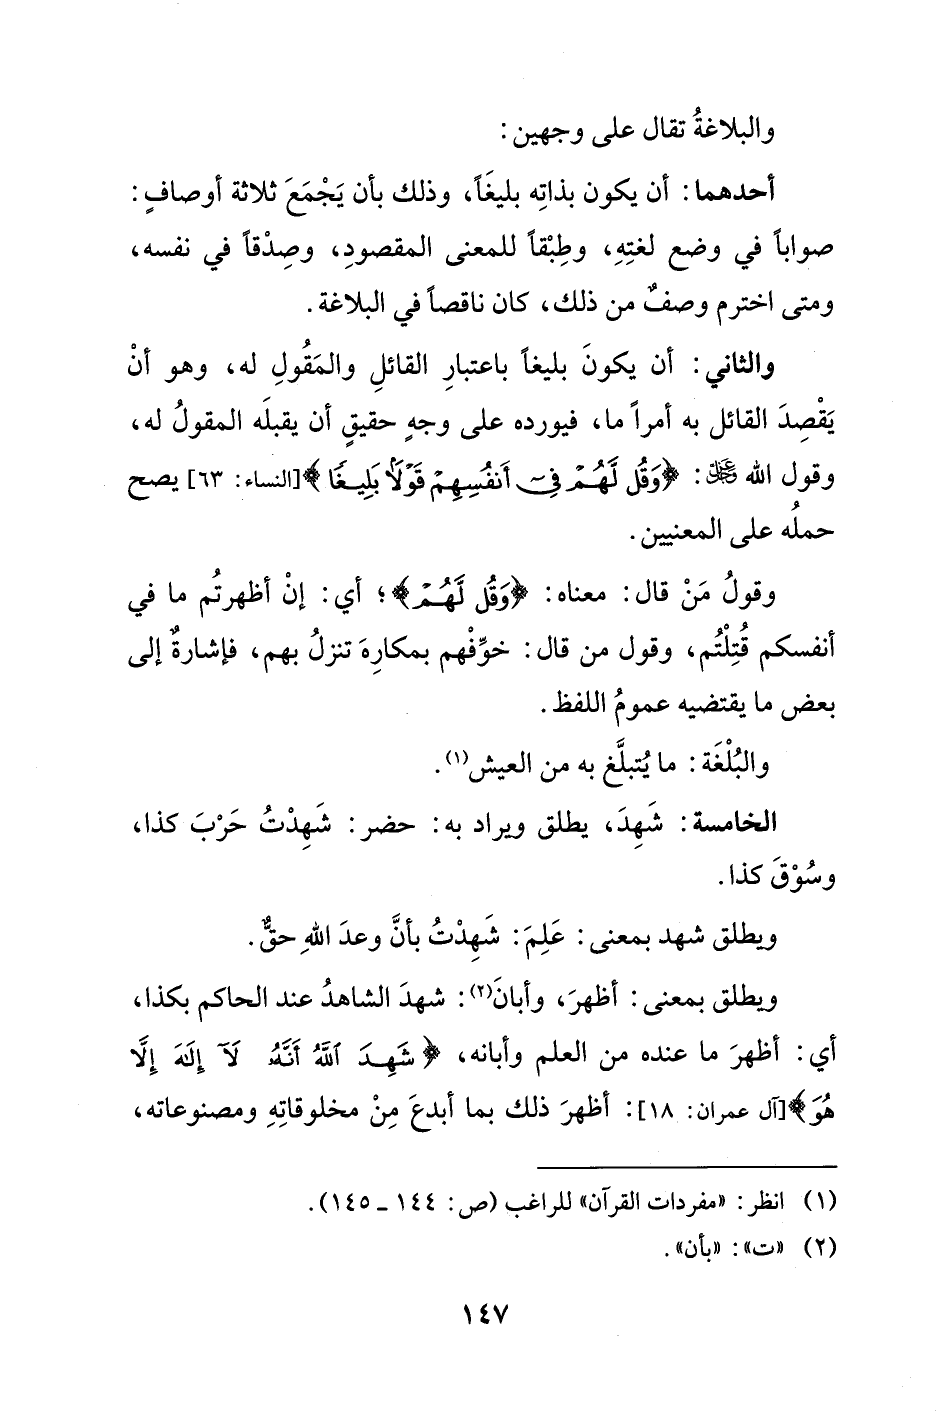 والبلاغةُ تقال على وجهين:
أحدهما: أن يكون بذاتِه بليغَاً، وذلك بأن يَجْمَعَ ثلاثة أوصافٍ:
صواباً في وضع لغتِهِ، وطِبْقاً للمعنى المقصودِ، وصِدْقاً في نفسه،
ومتى اخترم وصفٌ من ذلك، كان ناقصاً في البلاغة.
والثاني: أن يكونَ بليغاً باعتبارِ القائلِ والمَقُولِ له، وهو أنْ
يَقْصِدَ القائل به أمراً ما، فيورده على وجهٍ حقيقٍ أن يقبلَه المقولُ له،
وقول الله ﷻ: ﴿وَقُل لَّهُمْ فِىٓ أَنفُسِهِمْ قَوْلًا بَلِيغًا﴾[النساء: ٦٣] يصح
حملُه على المعنيين.
وقولُ مَنْ قال: معناه: ﴿وَقُل لَّهُمْ﴾؛ أي: إنْ أظهرتُم ما في
أنفسكم قُتِلْتُم، وقول من قال: خوِّفْهم بمكارِهَ تنزلُ بهم، فإشارةٌ إلى
بعض ما يقتضيه عمومُ اللفظ.
والبُلْغَة: ما يُتبلَّغ به من العيش(١).
الخامسة: شَهِدَ، يطلق ويراد به: حضر: شَهِدْتُ حَرْبَ كذا،
وسُوْقَ كذا.
ويطلق شهد بمعنى: عَلِمَ: شَهِدْتُ بأنَّ وعدَ اللهِ حقٌّ.
ويطلق بمعنى: أظهرَ، وأبانَ(٢): شهدَ الشاهدُ عند الحاكم بكذا،
أي: أظهرَ ما عنده من العلم وأبانه، ﴿شَهِدَ ٱللَّهُ أَنَّهُۥ لَآ إِلَٰهَ إِلَّا
هُوَ﴾[آل عمران: ١٨]: أظهرَ ذلك بما أبدعَ مِنْ مخلوقاتِهِ ومصنوعاته،
(١) انظر: «مفردات القرآن» للراغب (ص: ١٤٤ ـ ١٤٥).
(٢) «ت»: «بأن».
١٤٧